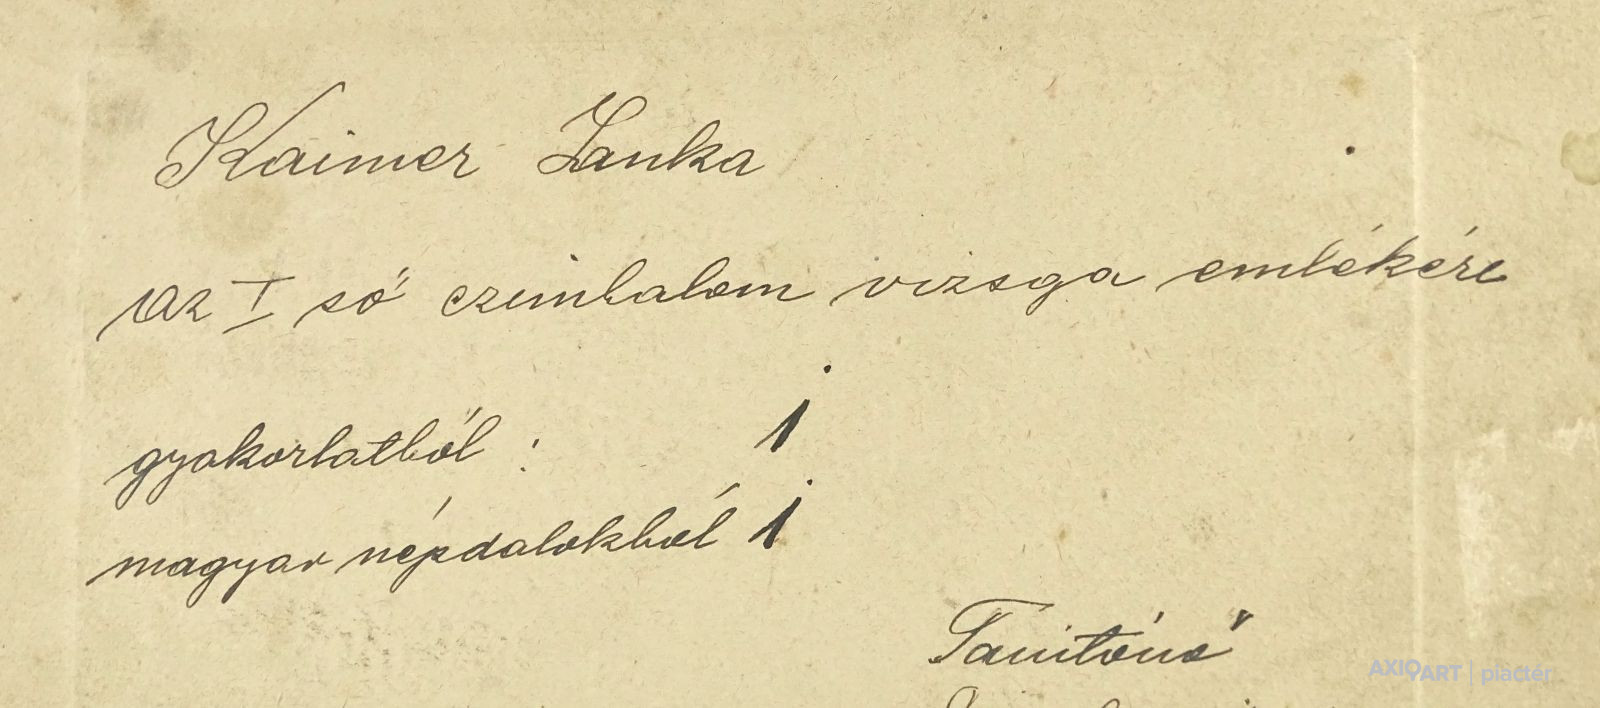 Kaimer Lanka
az I ső czimbalom vizsga emlékére
gyakorlatból : 1
magyar népdalokból 1
Tanítónő
AXIOART | piactér